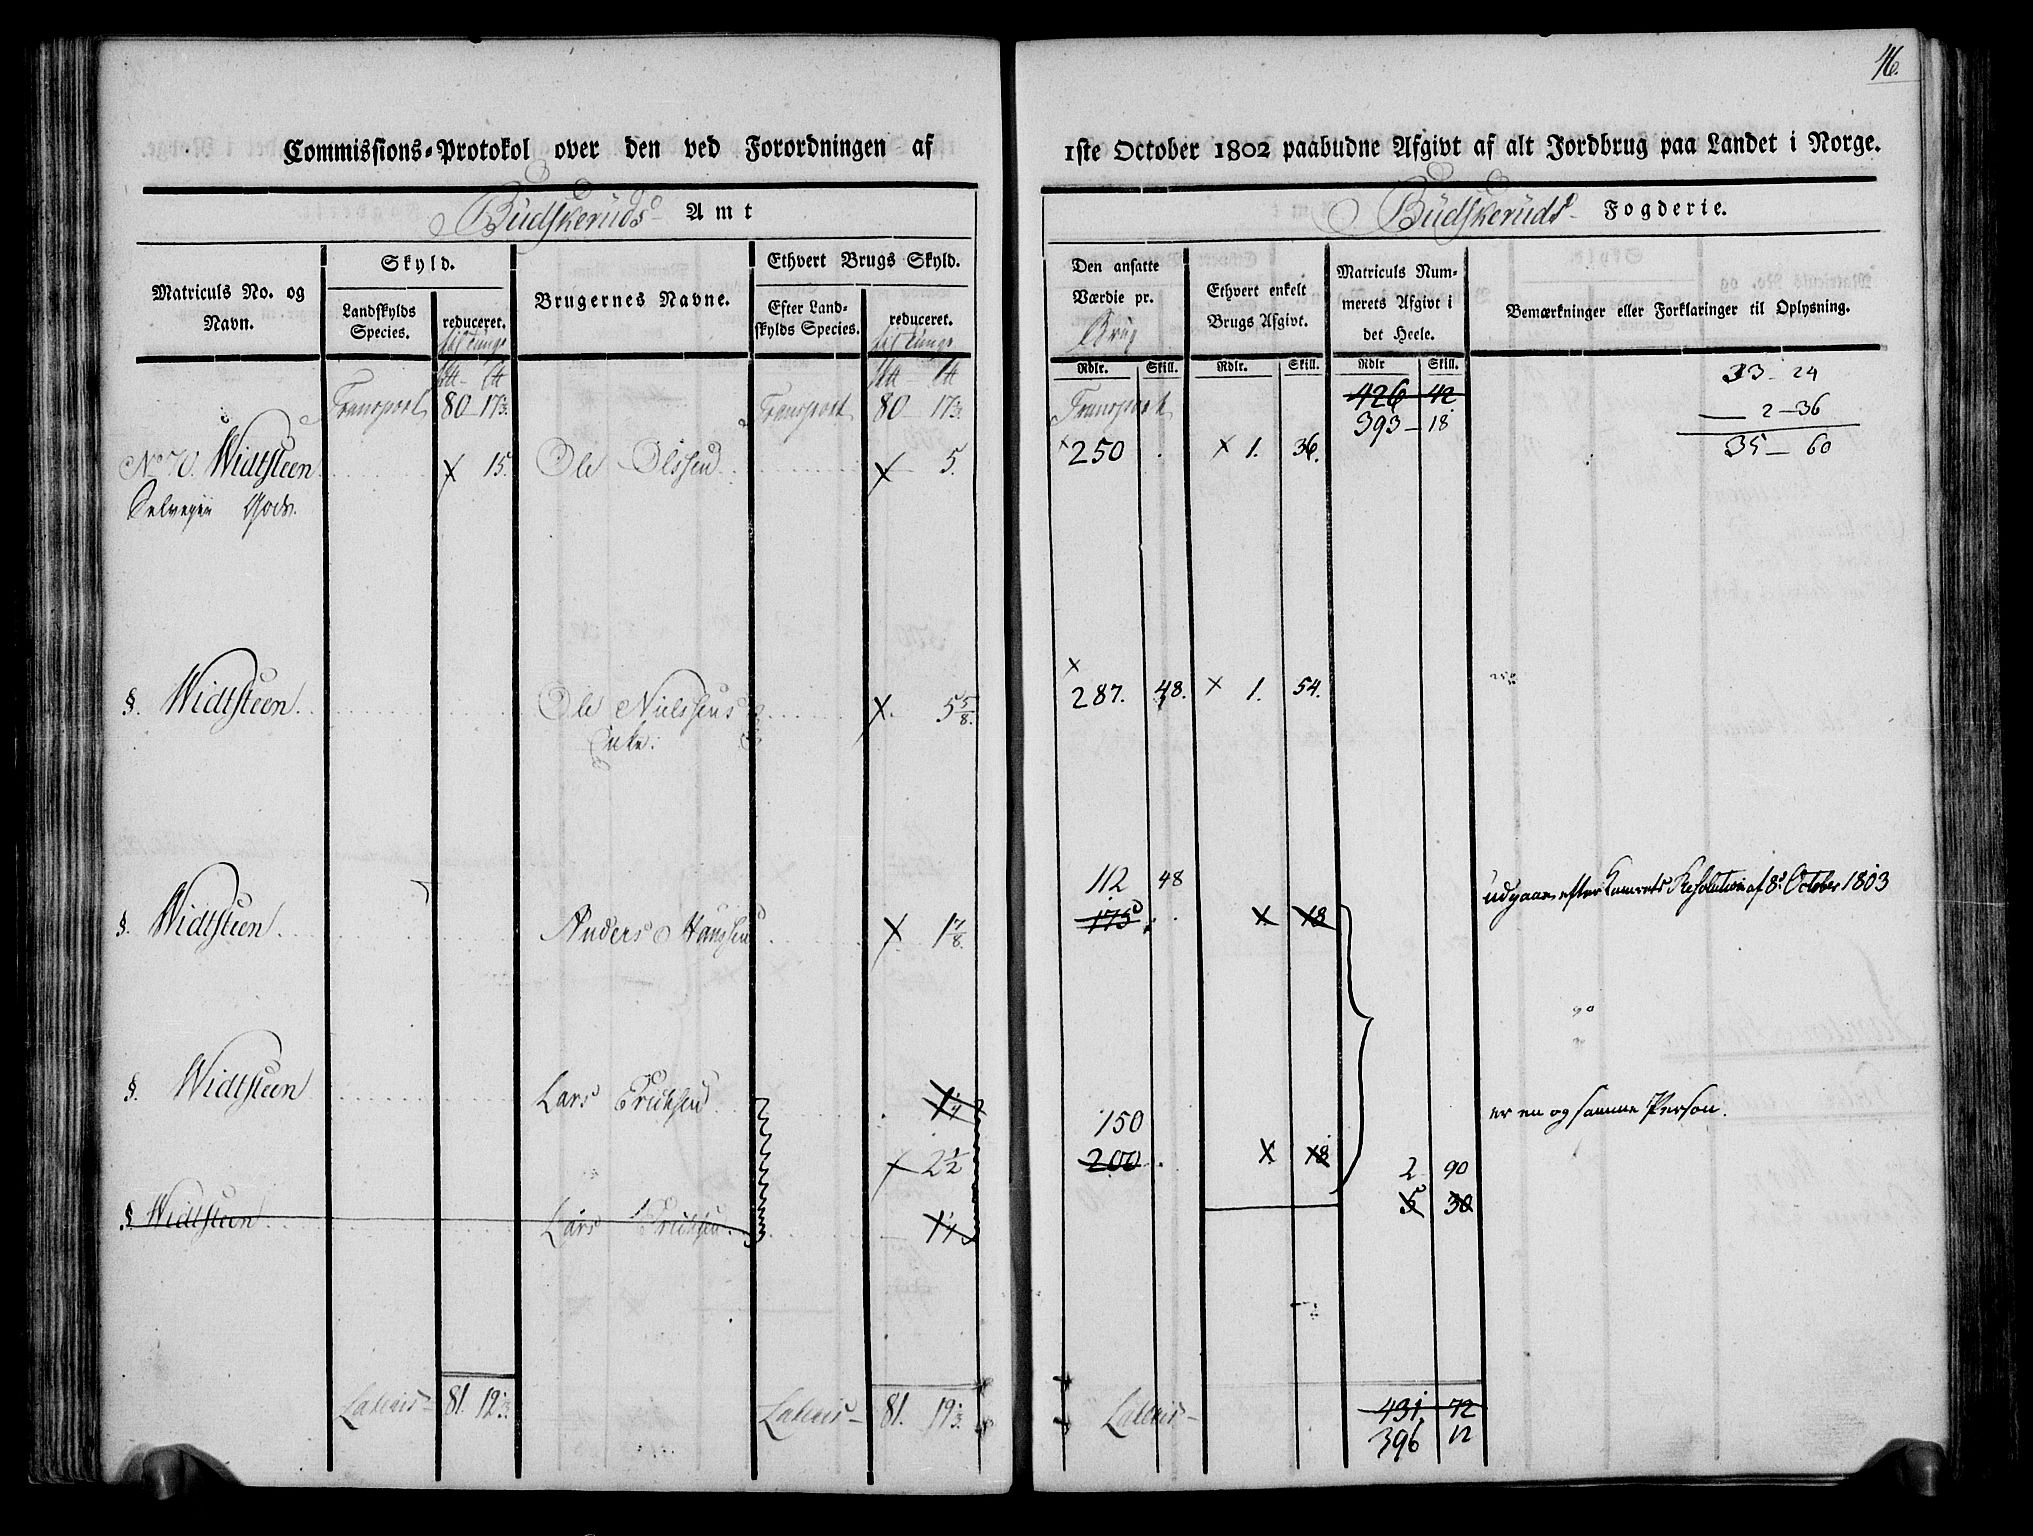 46.
Commissions-Protokol over den ved Forordningen af 1ste October 1802 paabudne Afgivt af alt Jordbrug paa Landet i Norge.
Budskeruds Amt
Budskeruds Fogderie.
Matriculs No. og Navn.
Skyld.
Landskylds Species.
reduceret.
Brugernes Navne.
Ethvert Brugs Skyld.
Efter Landskylds Species.
reduceret.
Den ansatte Værdie pr. Brug
Ethvert enkelt Brugs Afgivt.
Matriculs Nummerets Afgivt i det Heele.
Bemærkninger eller Forklaringer til Oplysning.
Rdlr. Skill. Rdlr. Skill. Rdlr Skill.
Transport 80 17 Transport 80 17 Transport 426 42
393 18
33 - 24
2 - 36
35 - 60
No 70. Widtsteen x 15. Ole Olssen x 5. x 250 . x 1. 36.
Selveyer Gods.
§. Widtsteen Ole Nielssens x. 5 5/8. x 287. 48. x 1. 54.
Enke.
112 48 udgaar efter Kamrets Resolution af 8de October 1803
§. Widtsteen Anders Hansen x 1 7/8. 175 . x 18
§. Widtsteen Lars Erichsen
150 er en og samme Person.
x 2 1/2 200 . x 18 2 90
5 30
§. Widtsteen Lars Erichsen
Lateris 81. 12 Lateris 81. 19 Lateris 431 72
396 12